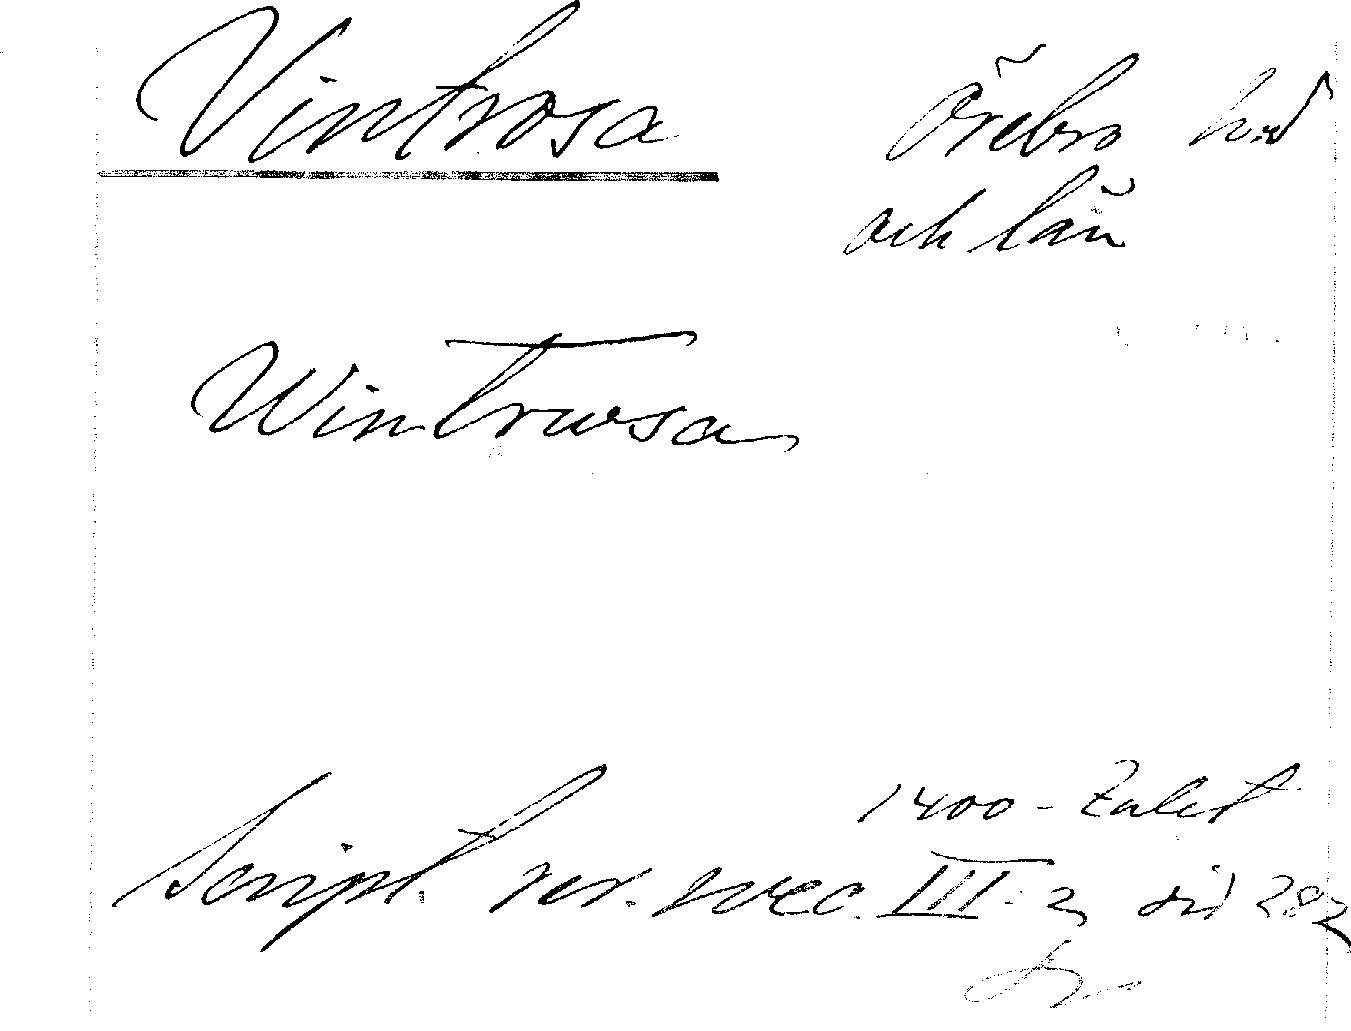 Vintrosa Örebro hd
och län
Wintrwsa
1400-talet
Script. rer. svec. III. 2 sid 282